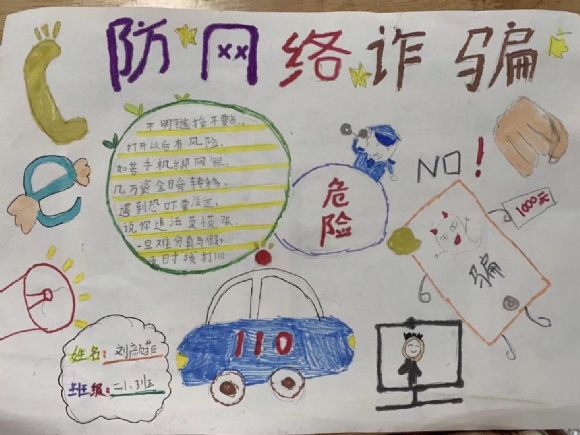 防网络诈骗
不明链接不要点,
打开以后有风险.
如若手机绑网银.
几万资金瞬转移.
遇到恐吓要注意,
说你违法莫慌张.
一旦难分真与假,
及时拨打110
危险
NO!
1000元
骗
110
姓名:
班级:二1.3班